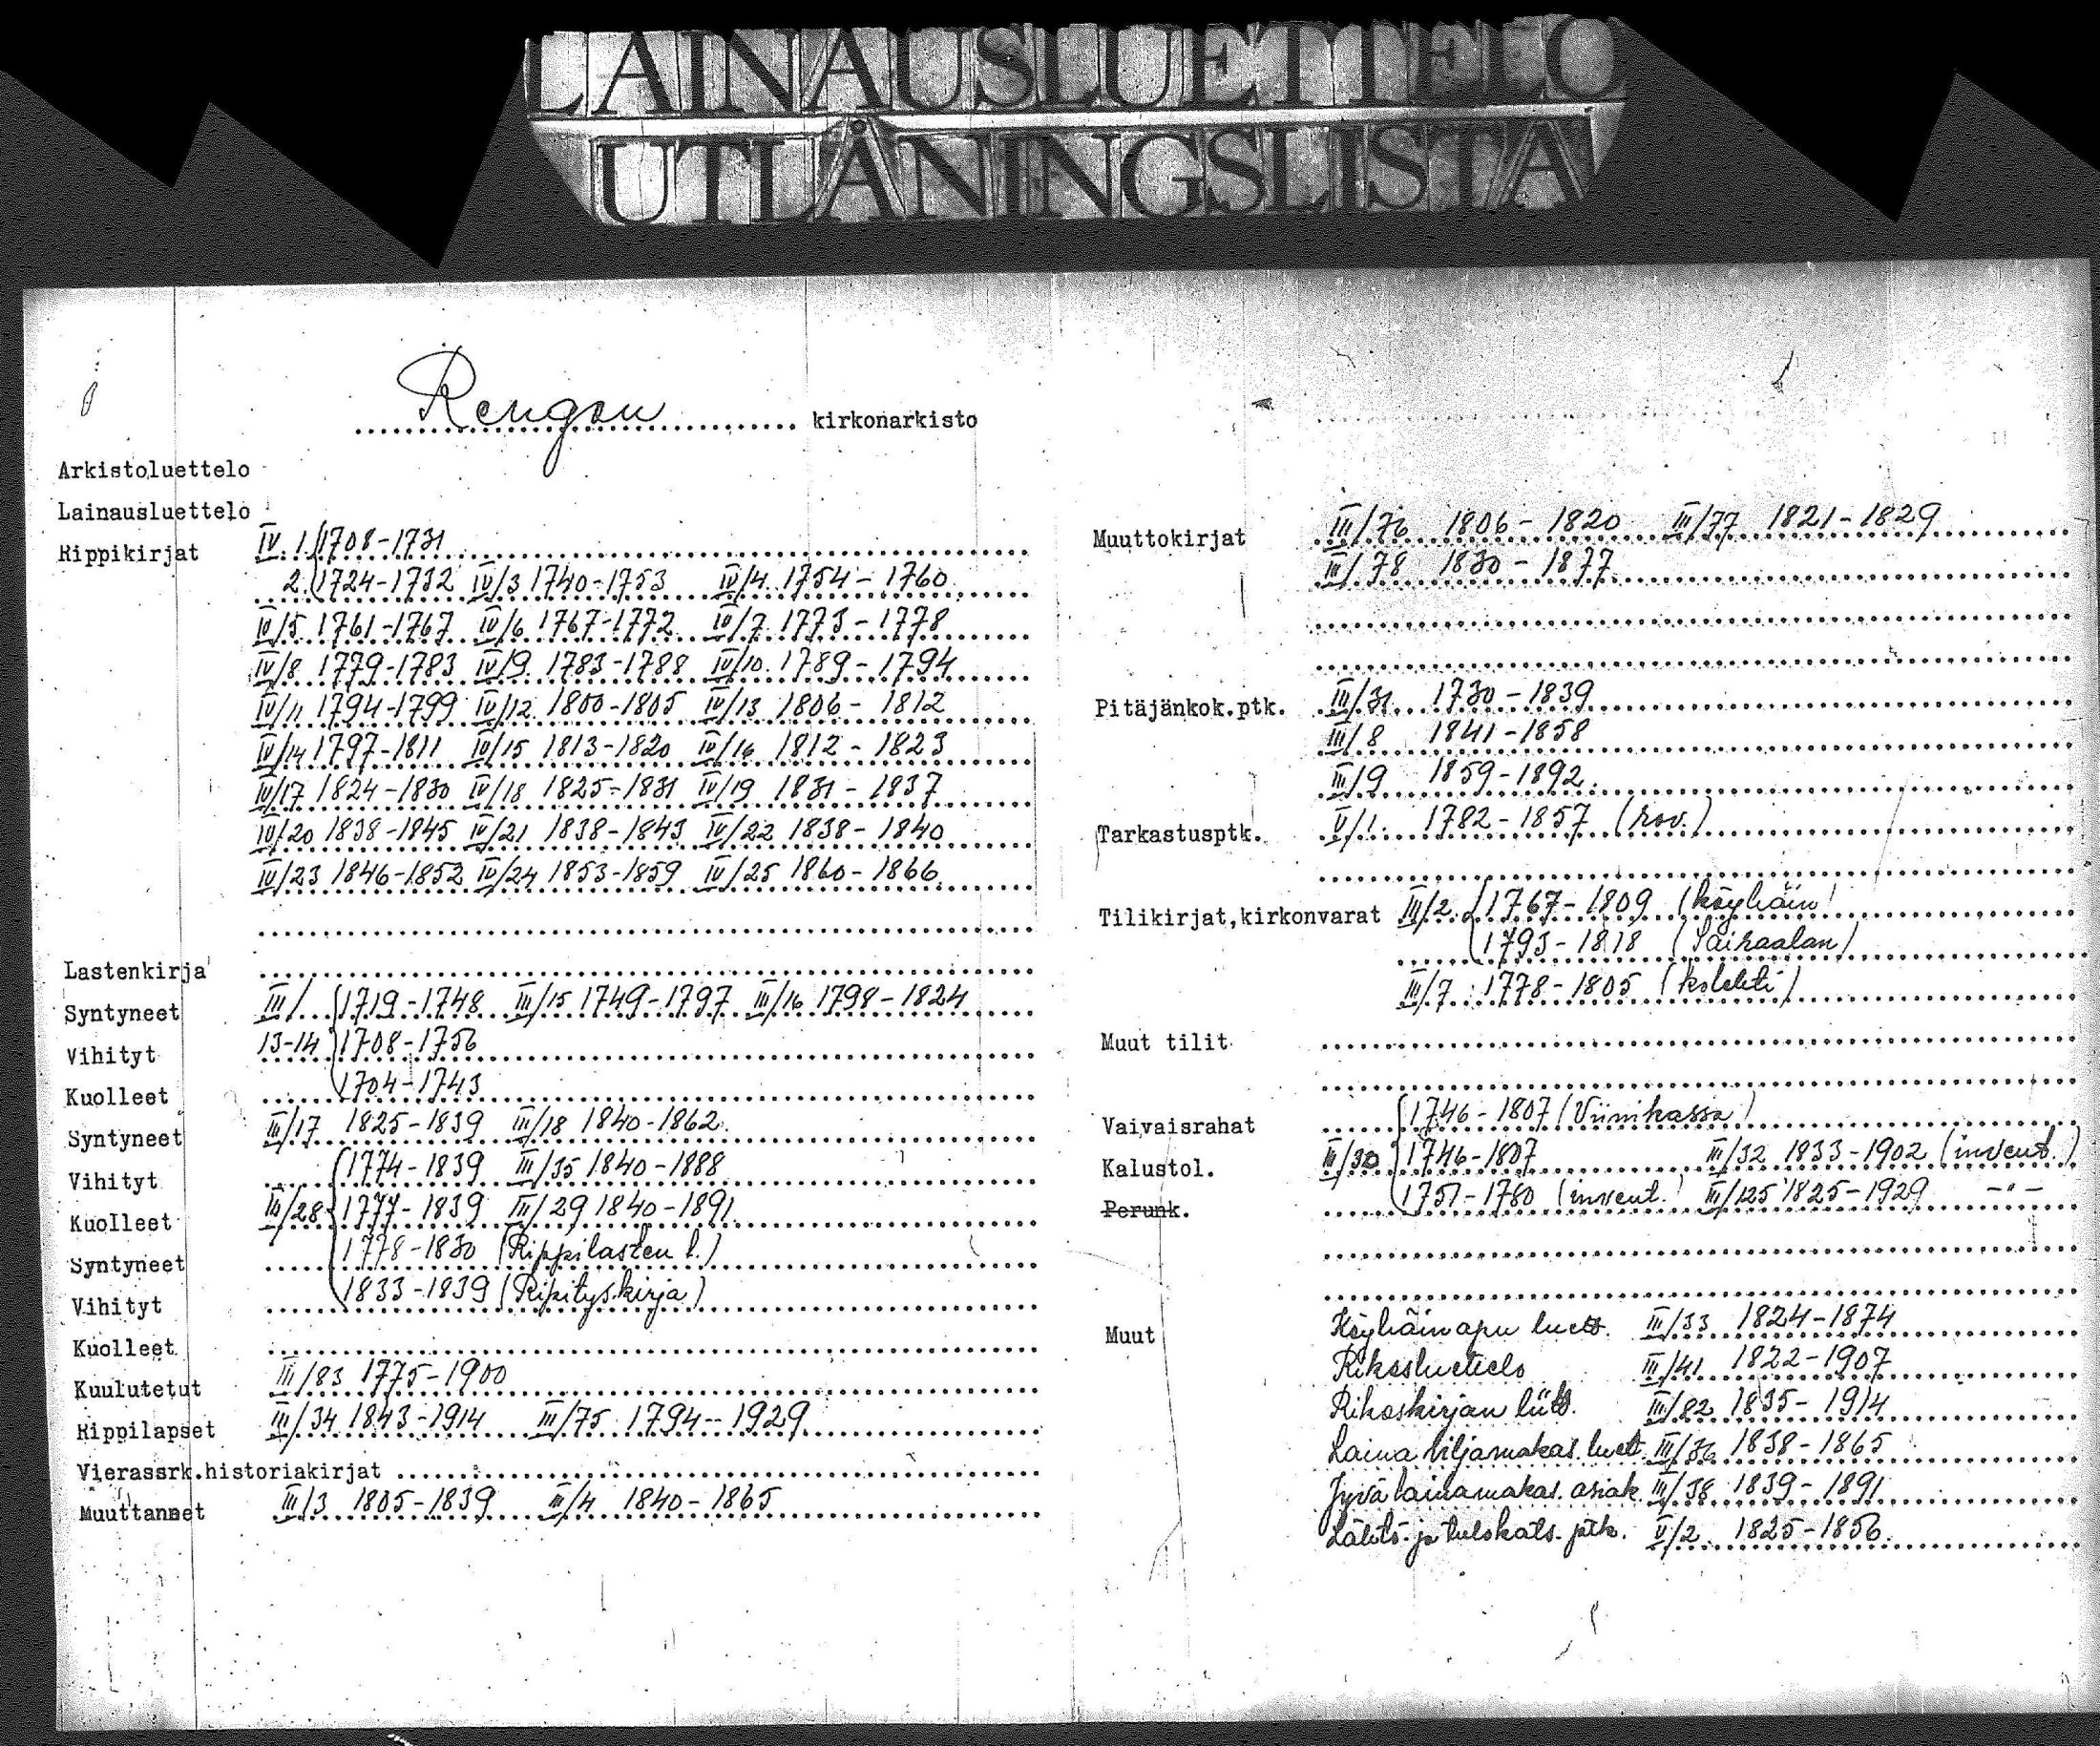 LAINAUSLUETTELO
UTLÅNINGSLISTA
Rengon kirkonarkisto
Arkistoluettelo
Lainausluettelo
Rippikirjat IV. 1. 1708-1731
2. 1724-1732 IV/3 1740-1753 IV/4 1754-1760
IV/5 1761-1767 IV/6 1767-1772 IV/7 1773-1778
IV/8 1779-1783 IV/9 1783-1788 IV/10 1789-1794
IV/11 1794-1799 IV/12 1800-1805 IV/13 1806-1812
IV/14 1797-1811 IV/15 1813-1820 IV/16 1812-1823
IV/17 1824-1830 IV/18 1825-1831 IV/19 1831-1837
IV/20 1838-1845 IV/21 1838-1843 IV/22 1838-1840
IV/23 1846-1852 IV/24 1853-1859 IV/25 1860-1866
Lastenkirja
Syntyneet III/ 1719-1748 III/15 1749-1797 III/16 1798-1824
Vihityt 13-14 1708-1756
Kuolleet 1704-1743
Syntyneet III/17 1825-1839 III/18 1840-1862
Vihityt 1774-1839 III/35 1840-1888
Kuolleet III/28 1777-1839 III/29 1840-1891
Syntyneet 1778-1830 (Rippilasten l.)
Vihityt 1833-1839 (Ripityskirja)
Kuolleet
Kuulutetut III/83 1775-1900
Rippilapset III/34 1843-1914 III/75 1794-1929
Vierassrk.historiakirjat
Muuttannet III/3 1805-1839 III/4 1840-1865
Muuttokirjat III/76 1806-1820 III/77 1821-1829
III/78 1830-1877
Pitäjänkok.ptk. III/31 1730-1839
III/8 1841-1858
III/9 1859-1892
Tarkastusptk. V/1. 1782-1857 (rov.)
Tilikirjat,kirkonvarat III/2 1767-1809 (köyhäin)
1793-1818 (Sairaalan)
III/7 1778-1805 (kolehti)
Muut tilit
Vaivaisrahat 1746-1807 (Viinikassa)
Kalustol. III/30 1746-1807 III/32 1833-1902 (invent.)
Perunk. 1751-1780 (invent.) III/125 1825-1929 -"-
Muut Köyhäinapu luett. III/33 1824-1874
Rikosluettelo III/41 1822-1907
Rikoskirjan liitt. III/82 1835-1914
Laina viljamakas. luett. III/36 1838-1865
Jyvä lainamakas. asiak. III/38 1839-1891
Lähtö- ja tulokats. ptk. V/2 1825-1856